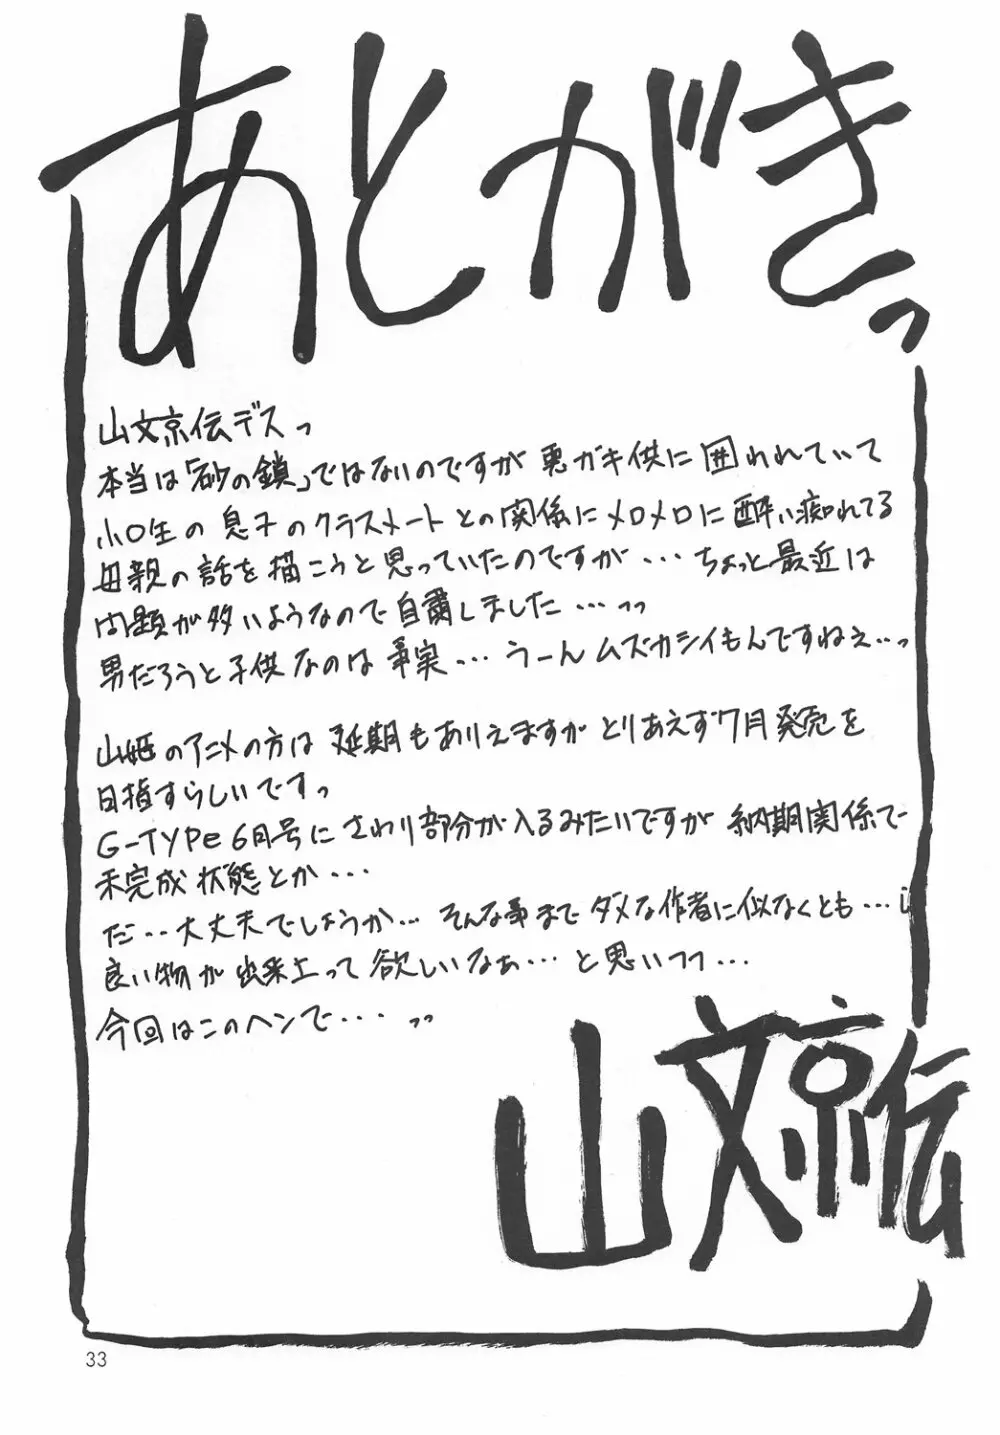 あとがきっ
山文京伝デスっ
本当は「砂の鎖」ではないのですが悪ガキ供に囲われていて
小○生の息子のクラスメートとの関係にメロメロに酔い痴れてる
母親の話を描こうと思っていたのですが・・・ちょっと最近は
問題が多いようなので自粛しました・・・っっ
男だろうと子供なのは事実・・・うーんムズカシイもんですねぇ・・・っ
山姫のアニメの方は延期もありえますがとりあえず7月発売を
目指すらしいですっ
G-TYPe6月号にさわり部分が入るみたいですが納期関係で
未完成状態とか・・・
だ・・・大丈夫でしょうか・・・そんな事までダメな作者に似なくとも・・・
良い物が出来上って欲しいなぁ・・・と思いつつ・・・
今回はこのヘンで・・・っっ
山文京伝
33